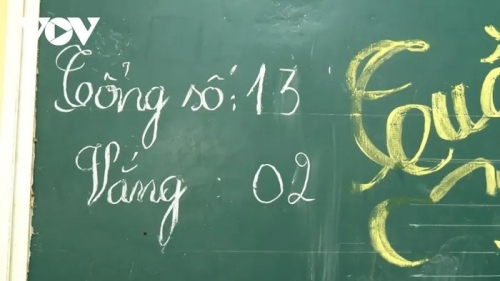 VOV
Tổng số: 13
Vắng : 02